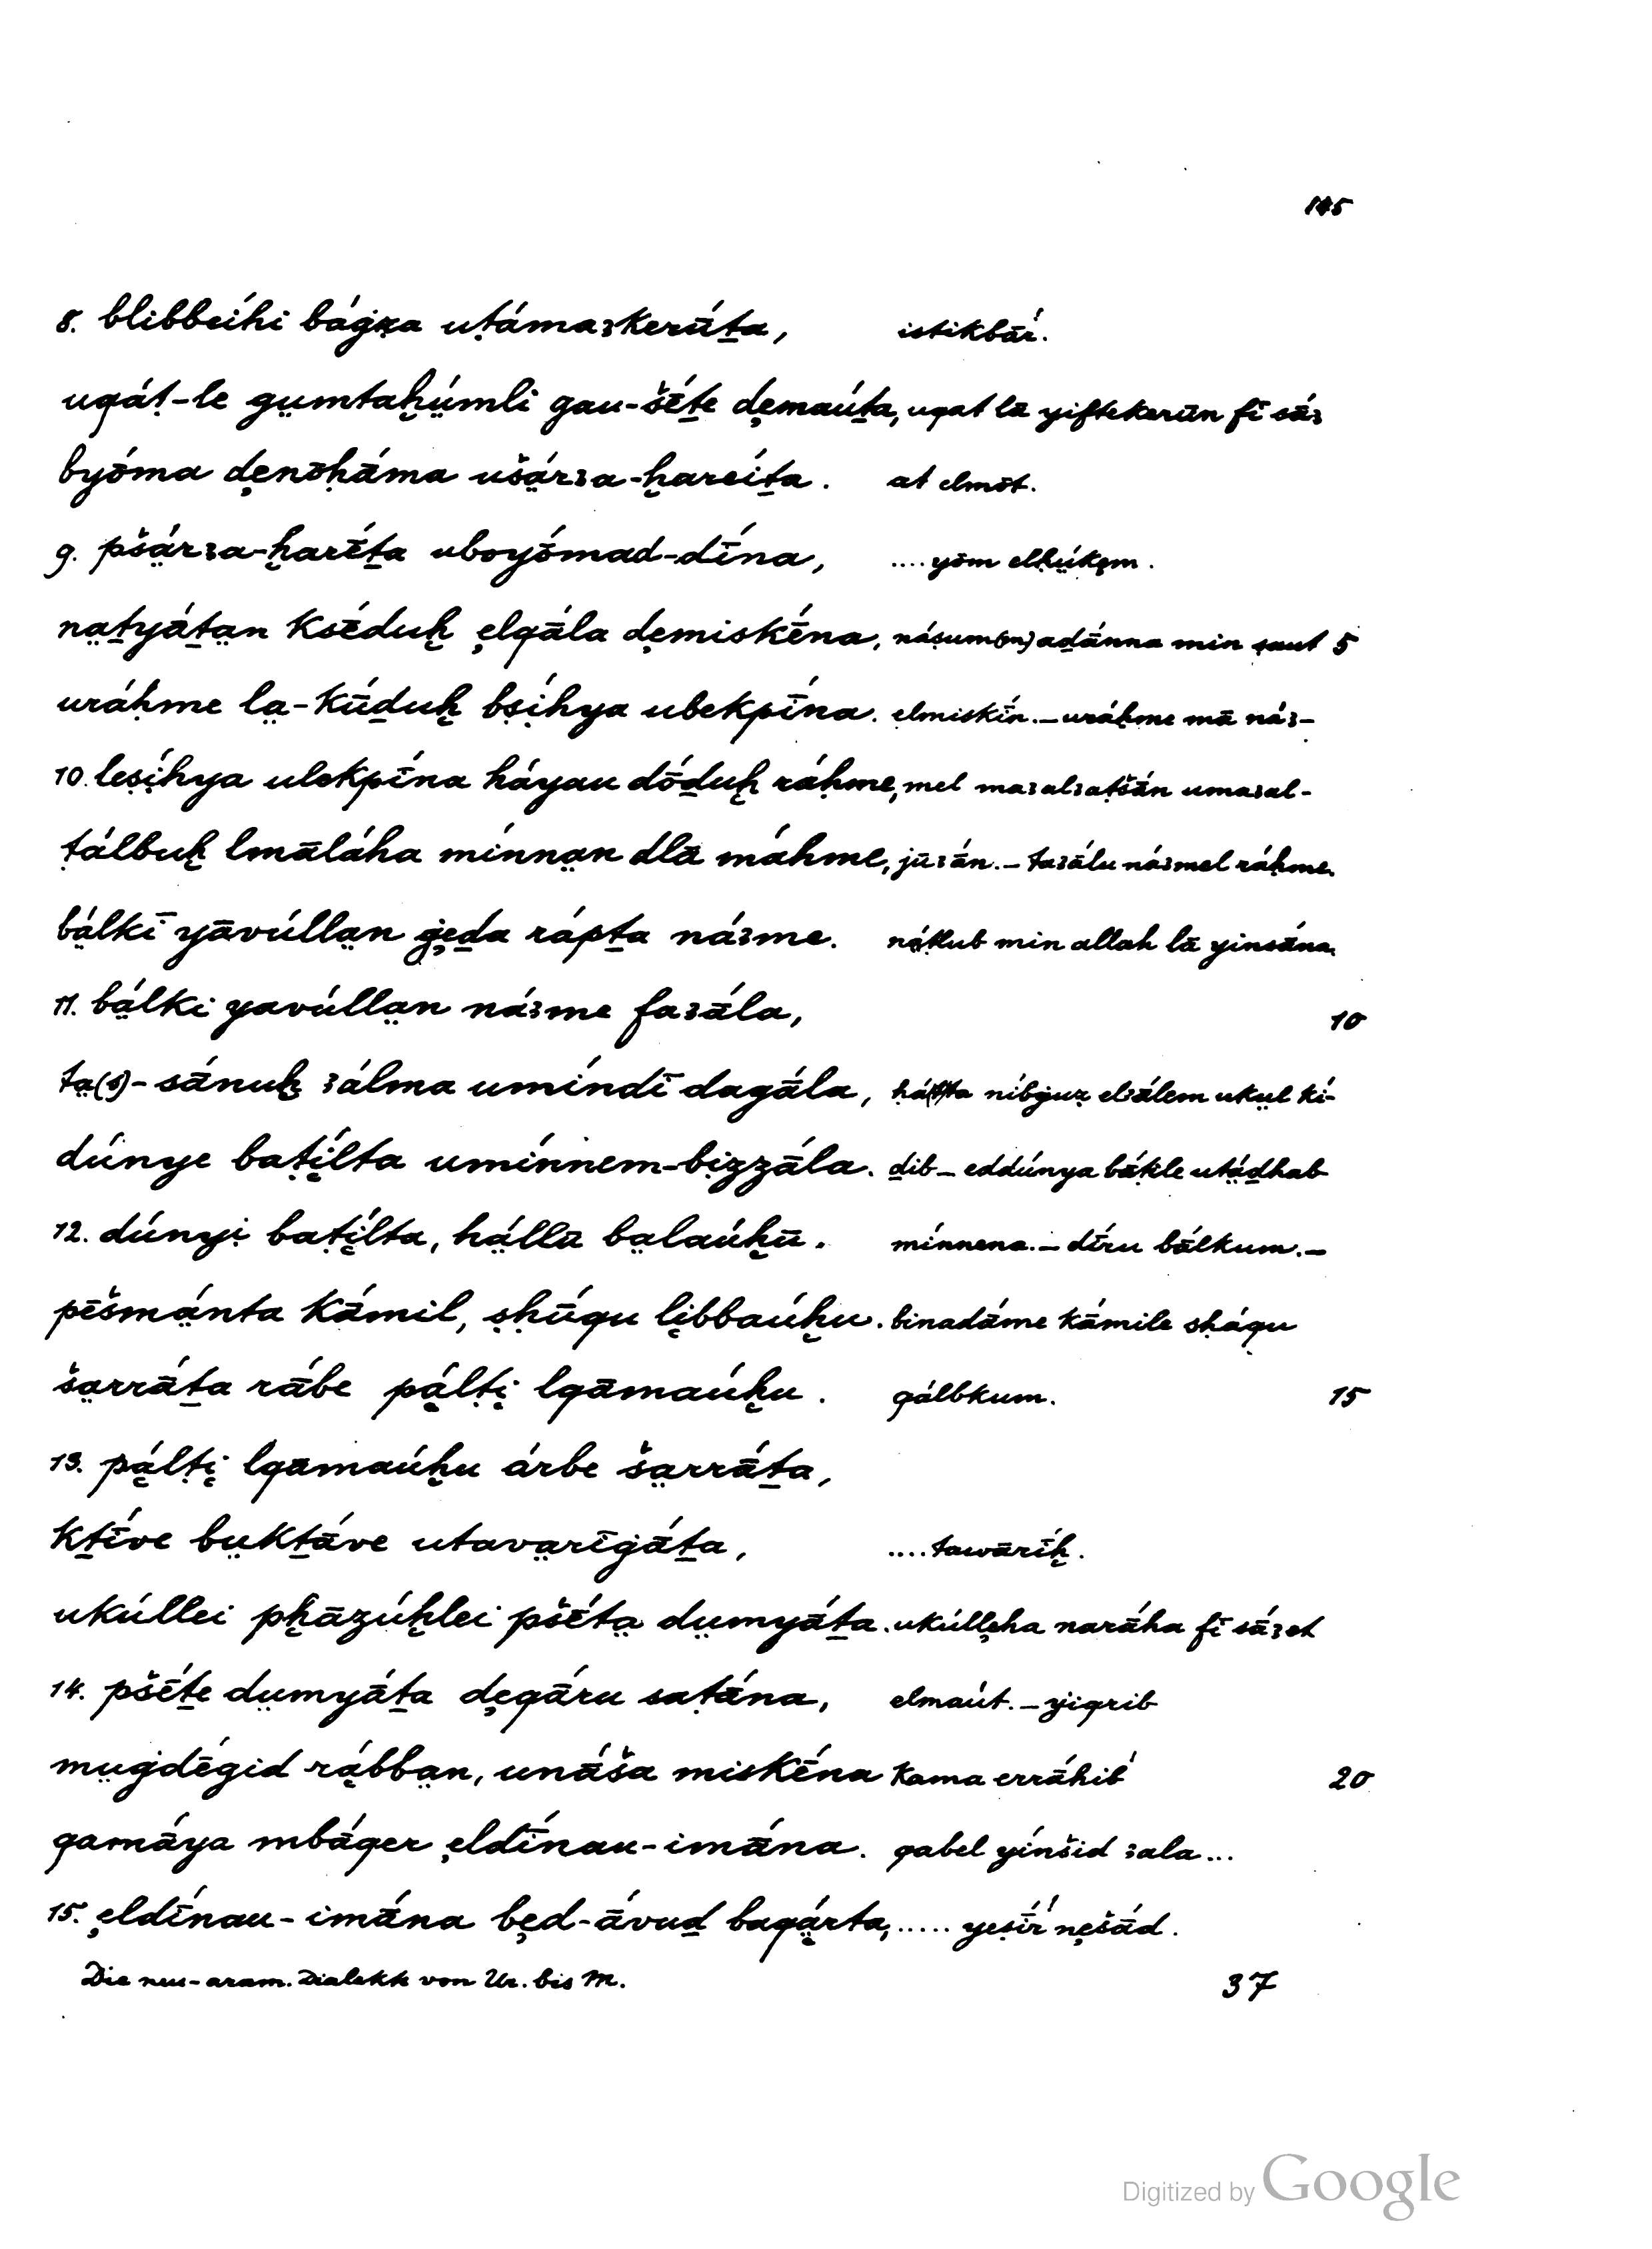 145
8. blibbeíhi bág̣ẓa uṭámaꜣkerūṯa, istikbār.
uqáṭ-le gṳmtaḫṳ́mli gau-šḗṯe de̜maúṯa, uqat lā yiftekerūn fī sā́ꜣ
byṓma de̜nōḥā́ma ušá̤rꜣa-ḫareíṯa. at elmōt.
9. pšá̤rꜣa-ḫarḗṯa uboyṓmad-dī́na, .... yōm elḥṳ́ke̜m.
na̤ṯyā́ṯa̤n ksḗduḫ e̜lqā́la de̜miskḗna, náṣum(m) aḏánna min ṣaut 5
uráḥme la̤-kū́ḏuḫ bṣíhya ubekpī́na. elmiskīn. – uráḥme mā náꜣ-
10. leṣíhya ulekpī́na háyau dṓḏuḫ ráḥme, mel maꜣalꜣaṭšān umaꜣal-
ṭálbuḫ lmāláha mínna̤n dlā máhme, jūꜣán. – taꜣálu náꜣmel ráḥme.
bá̤lkī yāvúlla̤n g̣e̜ḏa rápṯa náꜣme. náṭlub min allah lā yinsāna.
11. bá̤lki yavúlla̤n náꜣme faꜣā́la, 10
ta̤(s)-sā́nuḫ ꜣálma umíndī dagā́la, ḥá(t)ta nibġuẓ elꜣālem ukṳl kí-
dúnye baṭílta umínnem-bizzā́la. ḏib – eddúnya bāṭle utá̤ḏhab
12. dúnyi baṭílta, há̤llū ba̤laúḫū. mínnena. – díru bālkum. –
pēšmá̤nta kā́mil, ṣḥū́qu libbaúḫu. binadáme kāmile sḥáqu
ša̤rrā́ṯa rā́be pálṭi lqāmaúḫu. qálbkum. 15
13. pálṭi lqāmaúḫu árbe ša̤rrā́ṯa,
kṯī́ve bṳkṯā́ve utava̤rīgā́ṯa, .... tawārīḫ.
ukúllei pḫāzúḫlei pšḗta̤ dṳmyā́ṯa. ukúlle̜ha narāha fī sā́ꜣet
14. pšḗṯe dṳmyā́ṯa de̜qāru saṭā́na, elmaút. – yiqrib
mṳg̣dḗgid rábba̤n, unā́ša miskḗna kama errāhib
qamā́ya mbáqer e̜ldī́nau-imā́na. qabel yínšid ꜣala... 20
15. e̜ldī́nau-imā́na be̜d-ā́vuḏ baqárta, ..... yeṣīr ne̜šād.
Die neu-aram. Dialekte von Ur. bis M. 37
Digitized by Google